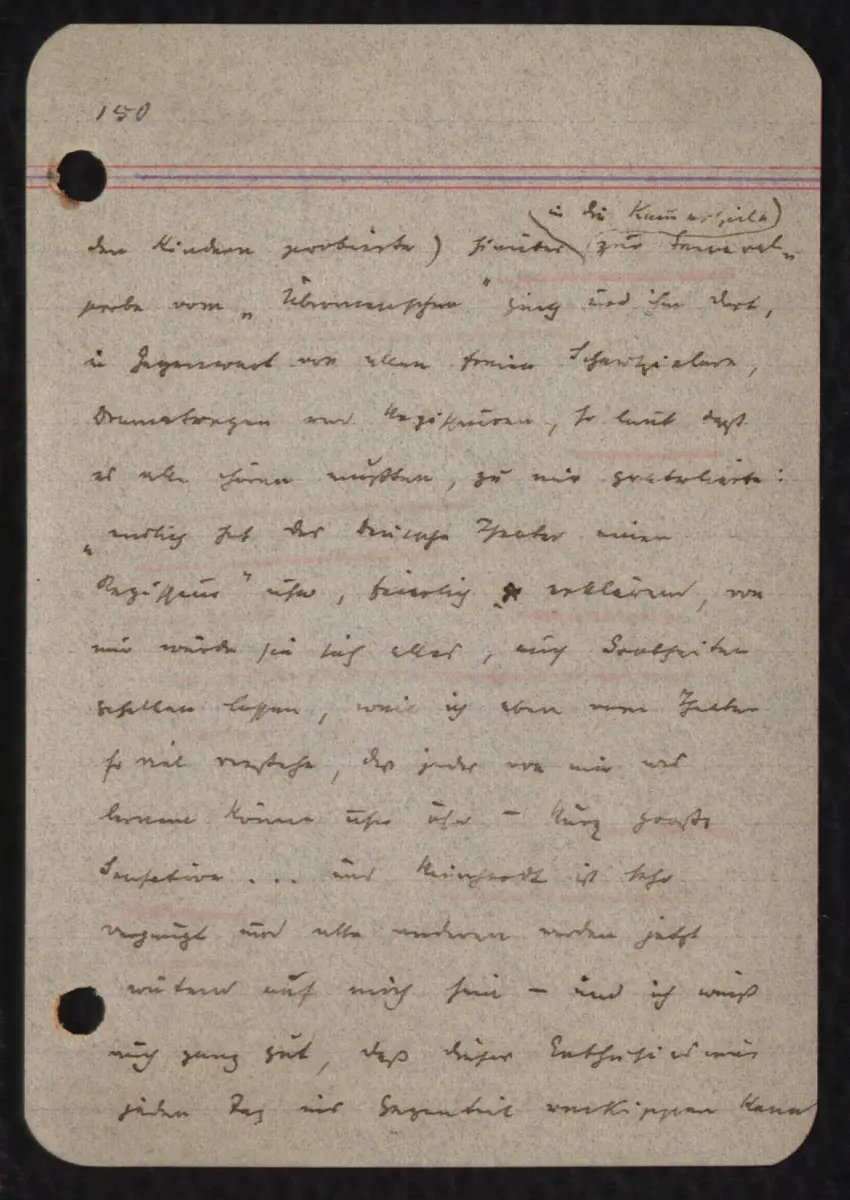 150
in die Kammerspiele)
den Kindern probierte) hinüber zur General-
probe vom „Übermenschen" ging und ihm dort,
in Gegenwart von allen freien Schauspielern,
Dramaturgen und Regisseuren, so laut daß
es alle hören mußten, zu mir gratulierte:
„endlich hat das Deutsche Theater einen
Regisseur" usw, feierlich erklärend, von
mir würde sie sich alles, auch Grobheiten
gefallen lassen, weil ich eben vom Theater
so viel verstehe, daß jeder von mir was
lernen könne usw usw – kurz große
Sensation ... und Reinhardt ist sehr
vergnügt und alle anderen werden jetzt
wütend auf mich sein – und ich weiß
auch ganz gut, daß dieser Enthusiasmus
jeden Tag ins Gegenteil umkippen kann